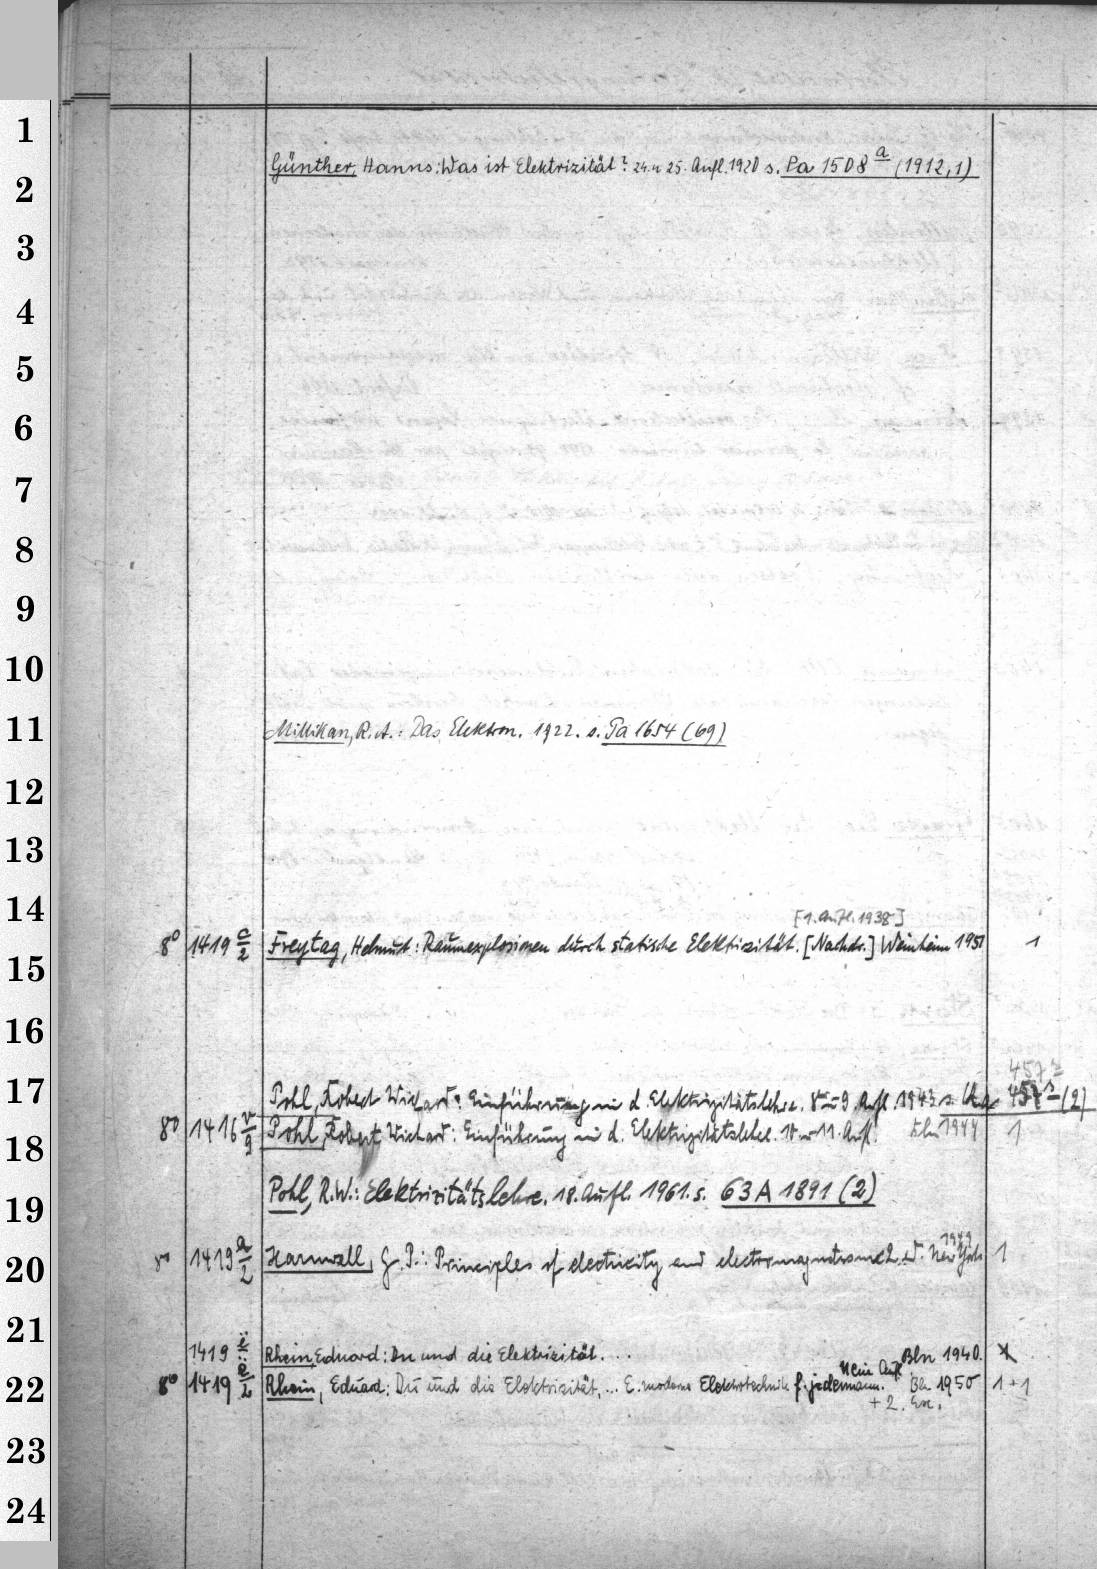 1
Günther, Hanns: Was ist Elektrizität? 24. u 25. Aufl. 1920 s. Pa 1508 a (1912,1)
2
3
4
5
6
7
8
9
10
11
Millikan, R. A.: Das Elektron. 1922. s. Pa 1654 (69)
12
13
14
[1. Aufl. 1938]
8° 1419 c/2 Freytag, Helmut: Raumexplosionen durch statische Elektrizität. [Nachdr.] Weinheim 1951 1
15
16
17
457 r
Pohl, Robert Wichard: Einführung in d. Elektrizitätslehre. 8 u 9. Aufl. 1943 s. 457 r (2)
8° 1416 v/g Pohl, Robert Wichard: Einführung in d. Elektrizitätslehre. 10 u 11. Aufl. Bln 1944 1
18
Pohl, R. W.: Elektrizitätslehre. 18. Aufl. 1961. s. 63 A 1891 (2)
19
1949
8° 1419 a/2 Harnwell, G. P.: Principles of electricity and electromagnetism 2. ed. New York 1
20
21
1419 ë Rhein, Eduard: Du und die Elektrizität. ... Bln 1940. x
Neue Aufl
22
8° 1419 ë/2 Rhein, Eduard: Du und die Elektrizität, ... E. moderne Elektrotechnik f. jedermann. Bln 1950 1 + 1
+ 2. Ex.
23
24